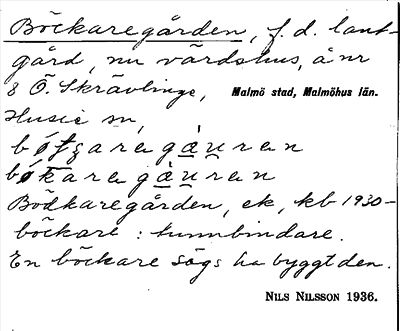 Böckaregården, f. d. lant-
gård, nu värdshus, å nr
8 Ö. Skrävlinge, Malmö stad, Malmöhus län.
Husie sn,
Bödkaregården, ek, kb 1930-
böckare : tunnbindare.
En böckare sägs ha byggt den.
NILS NILSSON 1936.